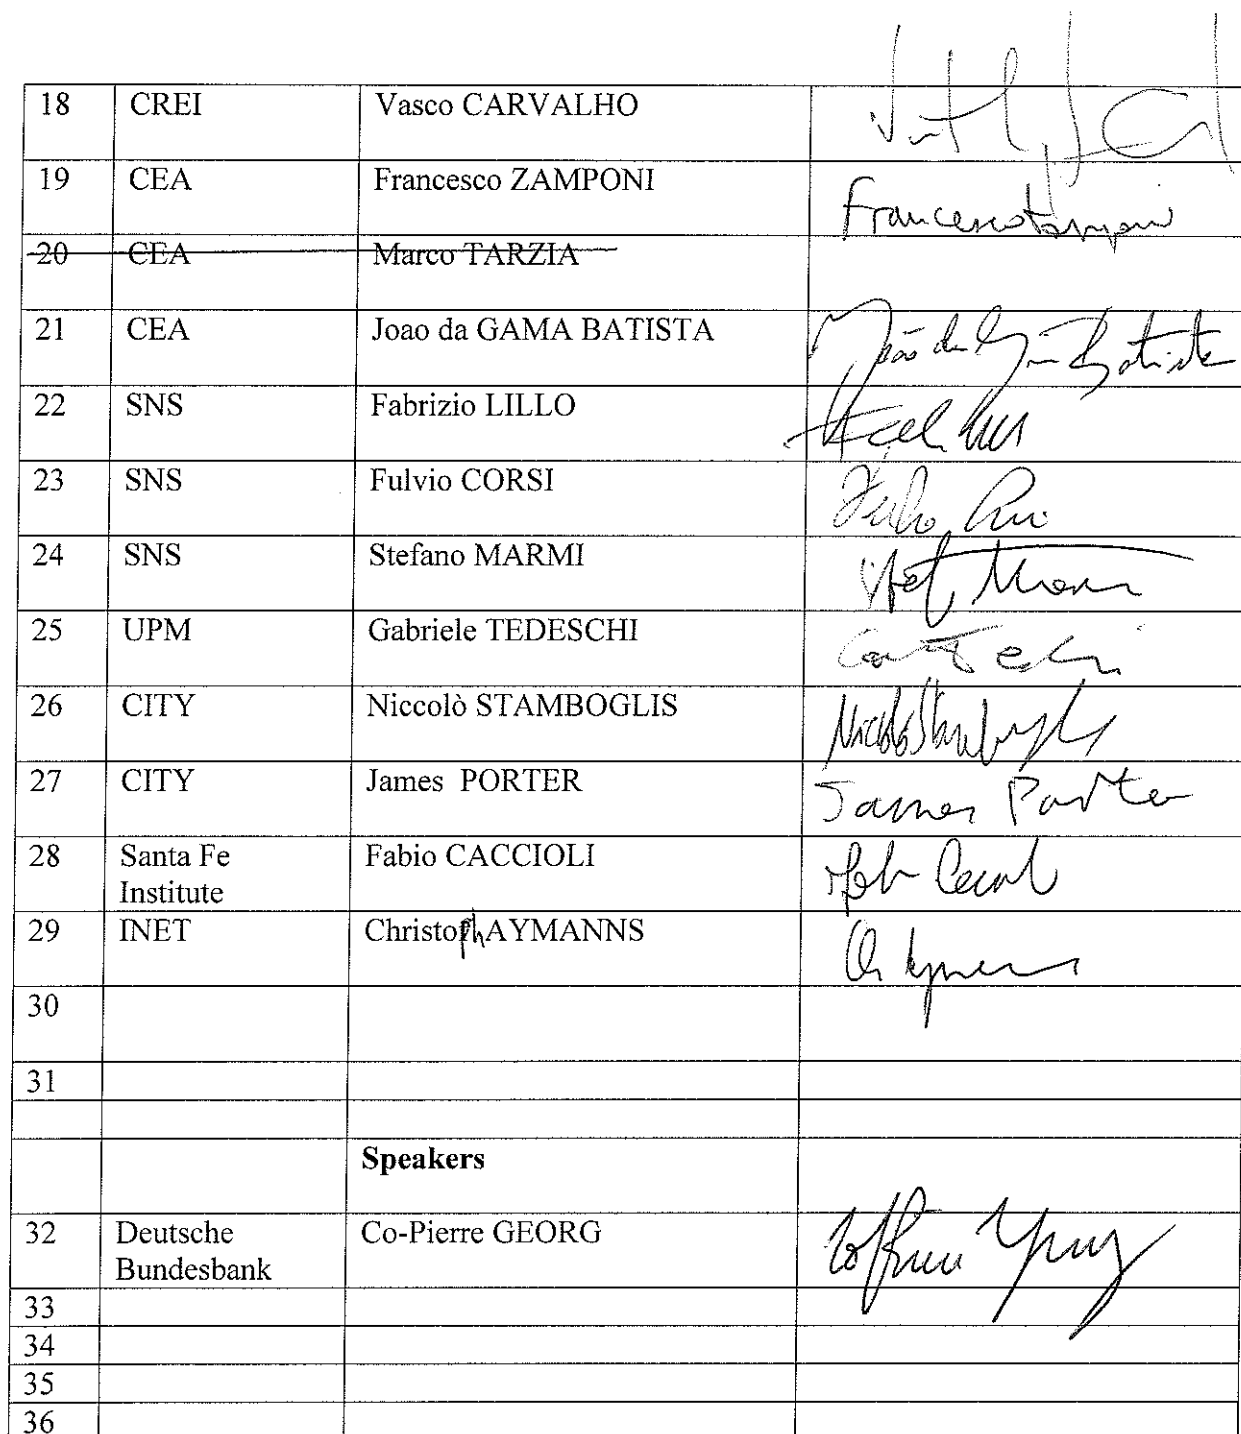 18 CREI Vasco CARVALHO
19 CEA Francesco ZAMPONI Francesco Zamponi
20 CEA Marco TARZIA
21 CEA Joao da GAMA BATISTA João da Gama Batista
22 SNS Fabrizio LILLO
23 SNS Fulvio CORSI
24 SNS Stefano MARMI
25 UPM Gabriele TEDESCHI
26 CITY Niccolò STAMBOGLIS Niccolò Stamboglis
27 CITY James PORTER James Porter
28 Santa Fe Fabio CACCIOLI
Institute
29 INET ChristophAYMANNS
30
31
Speakers
32 Deutsche Co-Pierre GEORG
Bundesbank
33
34
35
36